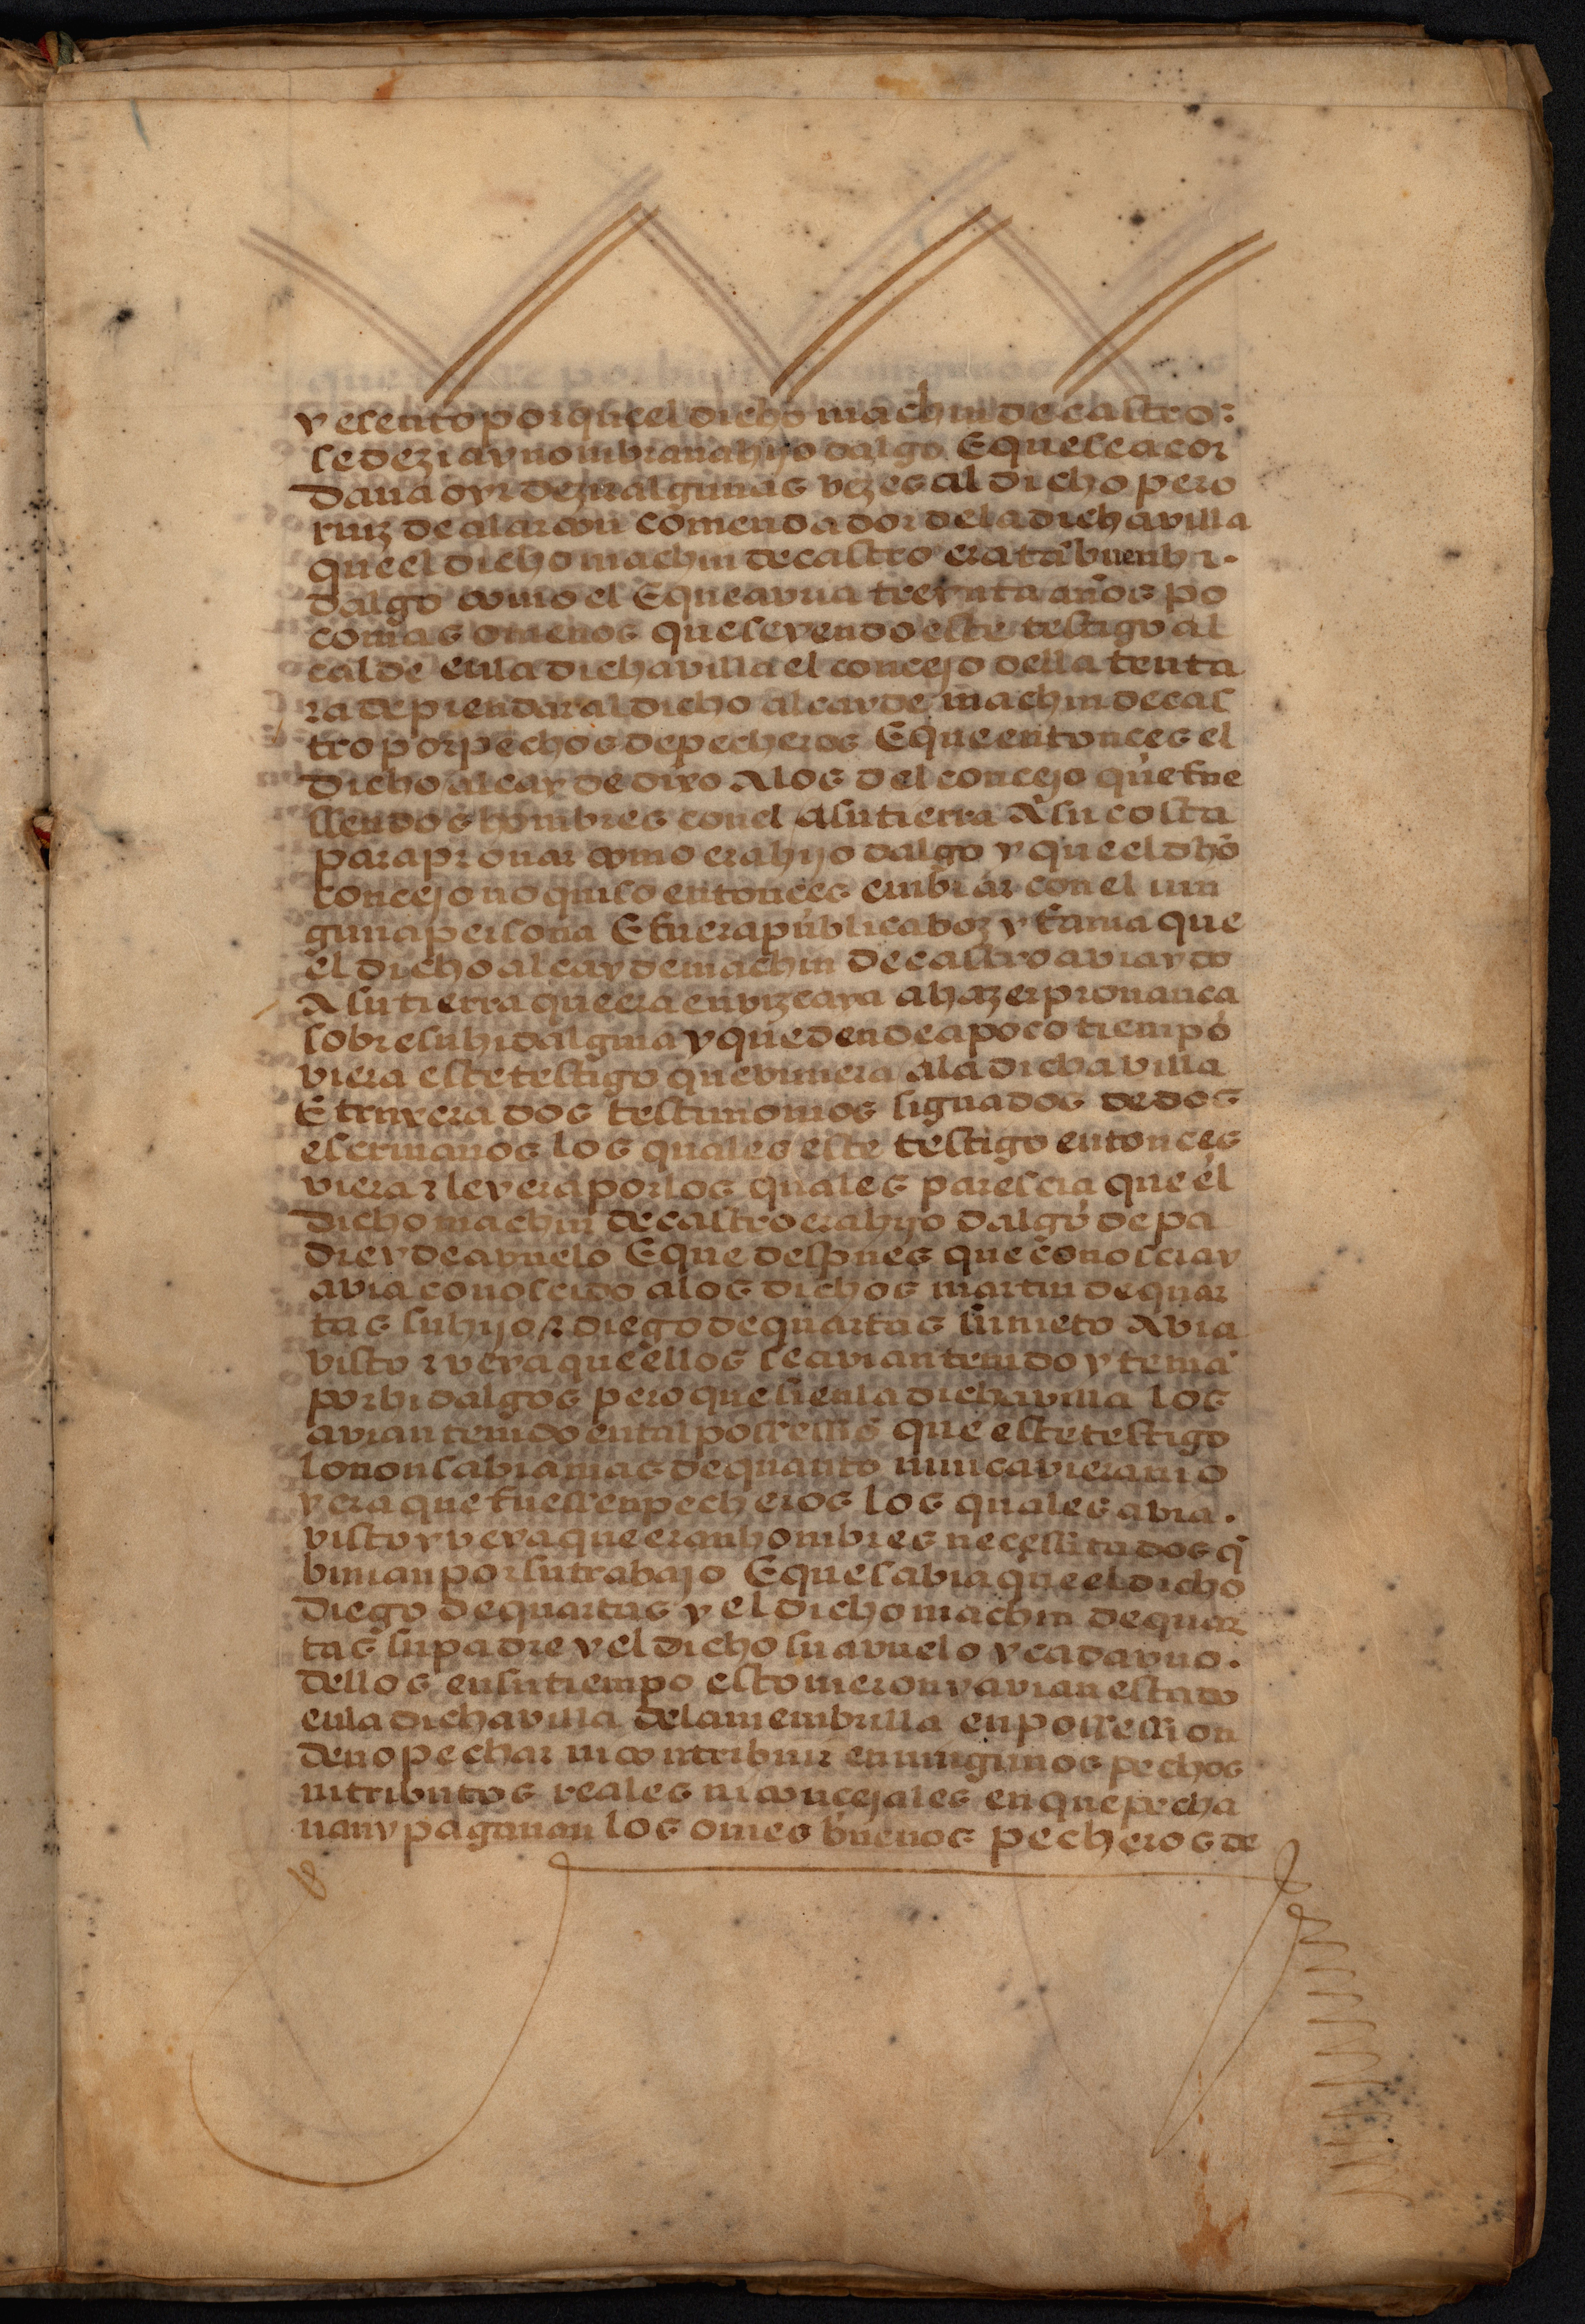 y esento por que el dicho machin de castro:
se dezia y nombraua hijo dalgo E que se acor
daua oyr dezir algunas vezes al dicho pero
ruiz de alarcon comendador de la dicha villa
que el dicho machin de castro era tã buen hi-
dalgo como el E que avria treynta años po
co mas o menos que seyendo este testigo al
calde en la dicha villa el concejo della tenta
ra de prendar al dicho alcayde machin de cas
tro por pechos de pecheros E que entonces el
dicho alcayde dixo A los del concejo que fue
ssen dos hombres con el a su tierra A su costa
para prouar como era hijo dalgo y que el dhõ
concejo no quiso entonces embiar con el nin
guna persona E fuera publica boz y fama que
el dicho alcayde machin de castro avia ydo
A su tierra que era en vizcaya a hazer prouança
sobre su hidalguia y que dende a poco tiempo
viera este testigo que viniera a la dicha villa
E truxera dos testimonios signados de dos
escriuanos los quales este testigo entonces
viera z leyera por los quales parescia que el
dicho machin de castro era hijo dalgo de pa
dre y de avuelo E que despues que conoscia y
avia conoscido a los dichos martin de quar
tas su hijo z diego de quartas su nieto Avia
visto z veya que ellos se avian tenido y teniã
por hidalgos pero que si en la dicha villa los
avian tenido en tal possessiõ que este testigo
lo non sabia mas de quanto nunca viera ni o
yera que fuessen pecheros los quales avia.
visto y veya que eran hombres necessitados q̃
biuian por su trabajo E que sabia que el dicho
diego de quartas y el dicho machin de quar
tas su padre y el dicho su avuelo y cada vno.
dellos en su tiempo estouieron y avian estado
en la dicha villa de la membrilla en possession
de no pechar ni contribuir en ningunos pechos
ni tributos reales ni concejales en que pecha
uan y pagauan los omes buenos pecheros de